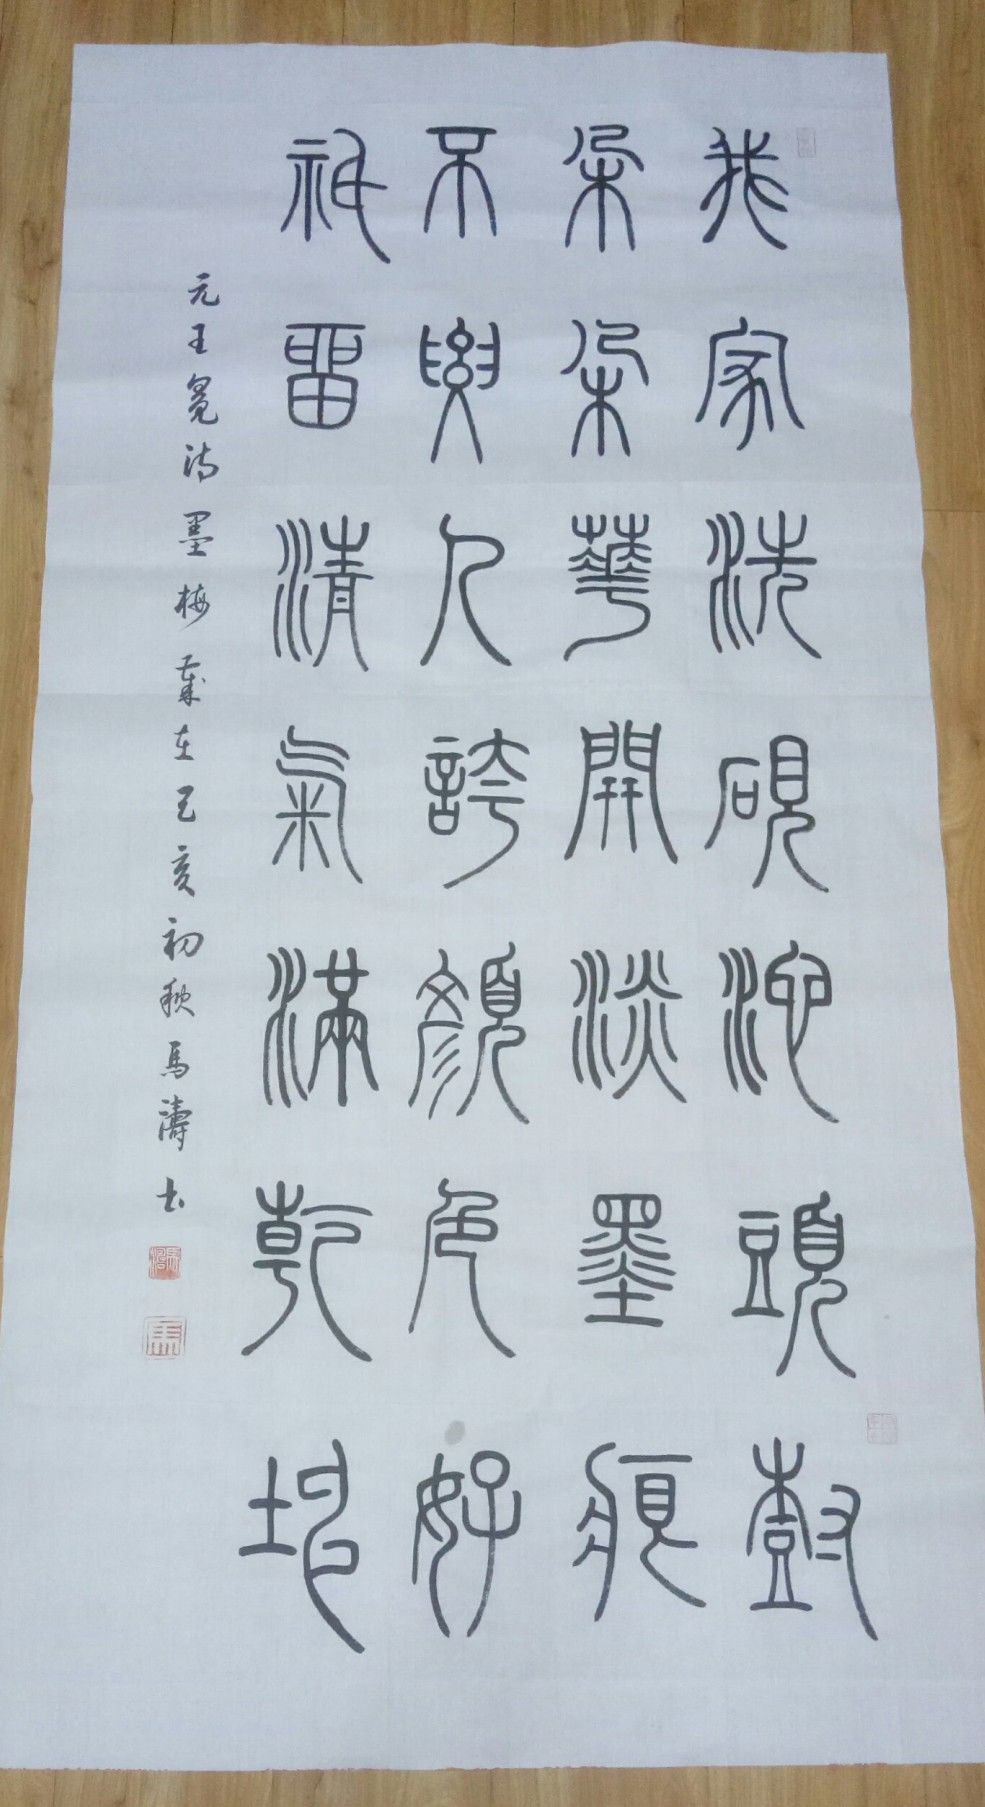 我家洗硯池頭樹
朵朵華開淡墨痕
不與人誇顏色好
祇留清氣滿乾坤
元王冕詩墨梅歲在己亥初秋馬濤书